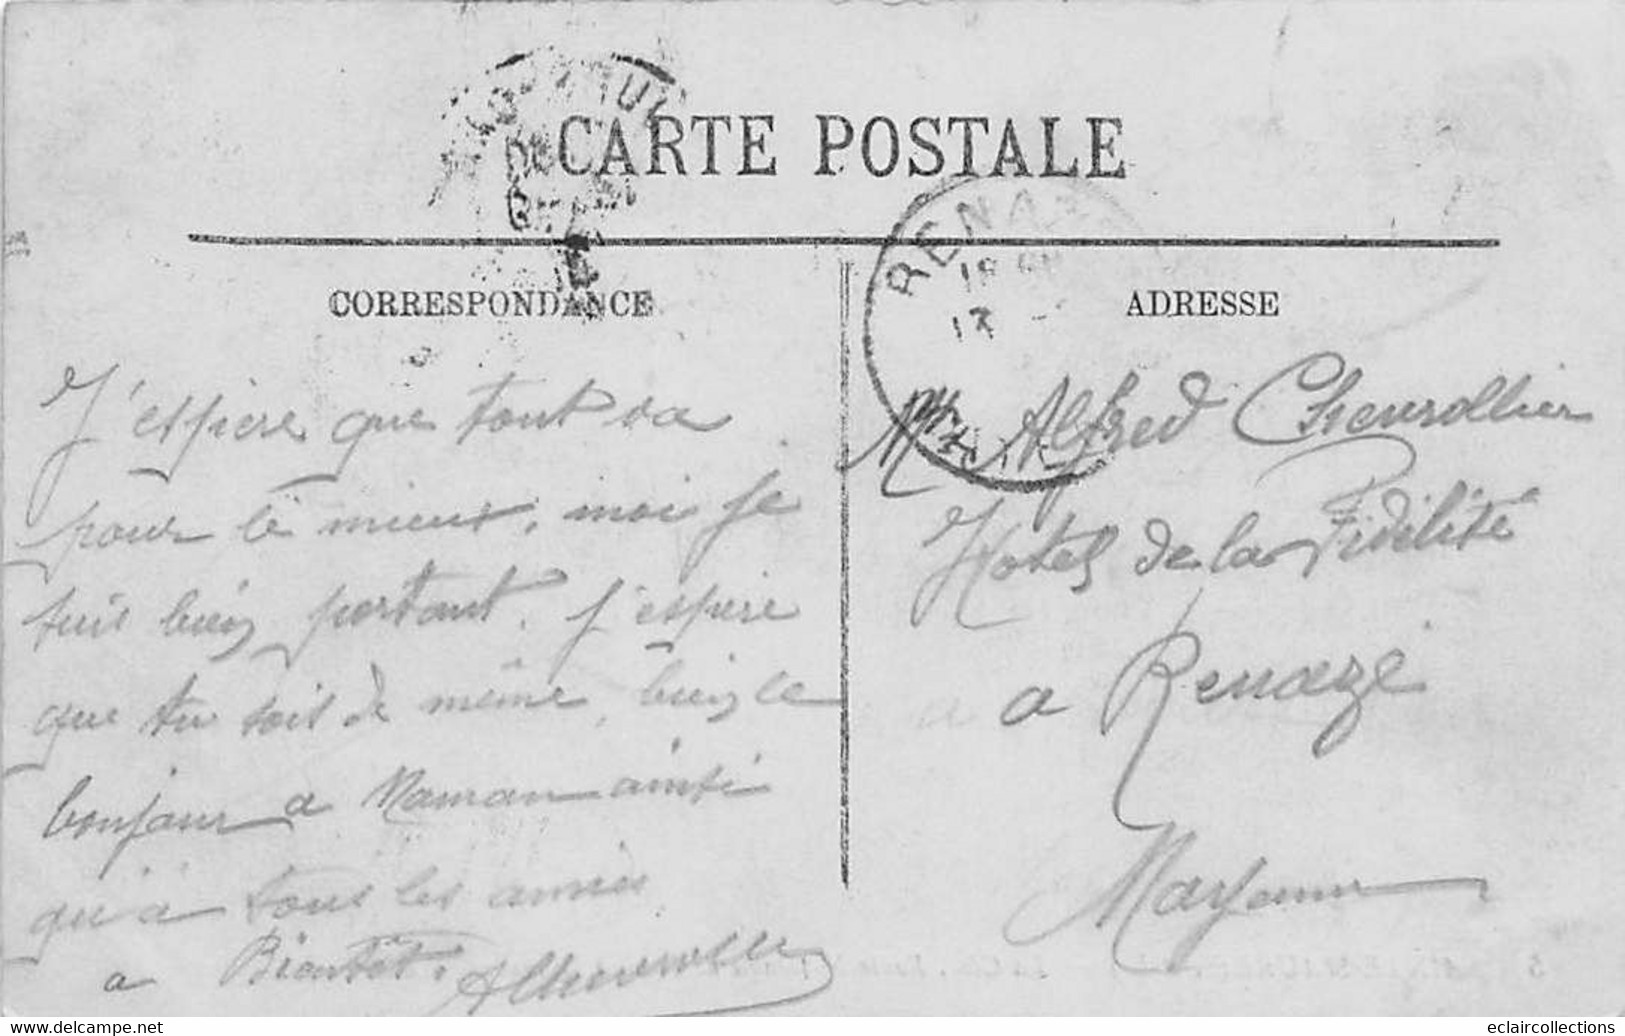 CARTE POSTALE
CORRESPONDANCE
J'espère que tout va
pour le mieux, moi je
suis bien portant. j'espère
que tu soit de même, bien le
bonjour a Maman ainsi
qu'à tous les amies
a Bientôt. AChevrollier
RENAZ
17
ADRESSE
Alfred Chevrollier
Hotel de la Fidélité
a Renazé
Mayenne
eclaircollections